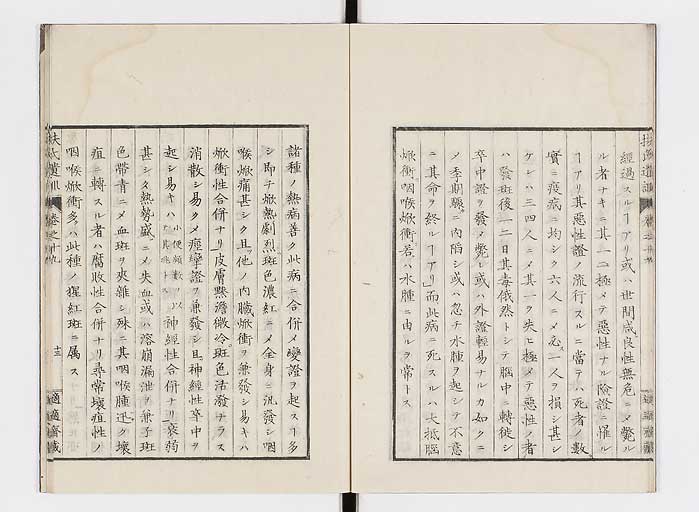 扶氏遺訓
經過スルヿアリ或ハ世間咸良性無危ニメ斃ル
ル者ナキニ其一二極メテ惡性ナル險證ニ罹ル
ヿアリ其惡性證ノ流行スルニ當テハ死者ノ數
實ニ疫病ニ均シク六人ニメ一人ヲ損シ甚シ
ケレハ三四人ニメ其一ヲ失ヒ極メテ惡性ノ者
ハ發斑後一二日其毒俄然トシテ腦中ニ轉徙シ
卒中證ヲ發メ斃レ或ハ外證輕易ナルカ如クニ
メ季期ニ内陷シ或ハ忽チ水腫ヲ起シテ不意
ニ其命ヲ終ルヿアリ而此病ニ死スルハ大抵腦
焮衝咽喉焮衝若ハ水腫ニ由ルヲ常トス
諸種ノ熱病善ク此病ニ合併メ變證ヲ起スヿ多
シ即チ焮熱劇烈斑色濃紅ニメ全身ニ汎發シ咽
喉焮痛甚シク且他ノ内臟焮衝ヲ兼發シ易キハ
焮衝性合併ナリ皮膚黙澹微冷斑色活潑ナラス
消散シ易クメ痙攣證ヲ兼發シ且神經性卒中ヲ
起シ易キハ神經性合併ナリ衰弱
甚シク熱勢盛ニメ失血或ハ溶崩漏泄ヲ兼子斑
色帶青ニメ血斑ヲ夾雜シ殊ニ其咽喉腫迅ク壞
疽ニ轉スル者ハ腐敗性合併ナリ尋常壞疽性ノ
咽喉焮衝多ハ此種ノ猩紅斑ニ属ス
扶氏遺訓
卷之十九
十三
適適齋藏